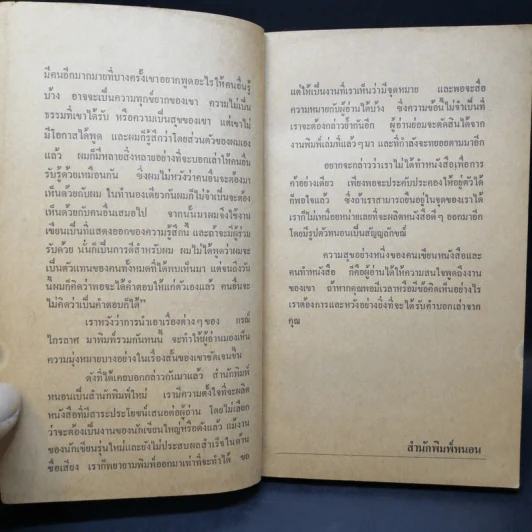 มีคนอีกมากมายที่บางครั้งเขาอยากพูดอะไรให้คนอื่นรู้
บ้าง อาจจะเป็นความทุกข์ยากของเขา ความไม่เป็น
ธรรมที่เขาได้รับ หรือความเป็นสุขของเขา แต่เขาไม่
มีโอกาสได้พูด และผมก็รู้สึกว่าโดยส่วนตัวของผมเอง
แล้ว ผมก็มีหลายสิ่งหลายอย่างที่จะบอกเล่าให้คนอื่น
รับรู้ด้วยเหมือนกัน ซึ่งผมไม่หวังว่าคนอื่นจะต้องมา
เห็นด้วยกับผม ในทำนองเดียวกันผมก็ไม่จำเป็นจะต้อง
เห็นด้วยกับคนอื่นเสมอไป จากนั้นมาผมจึงใช้งาน
เขียนเป็นที่แสดงออกของความรู้สึกนี้ และถ้าจะมีผู้ร่วม
รับด้วย นั่นก็เป็นการดีสำหรับผม ผมไม่ได้พูดว่าผมจะ
เป็นตัวแทนของคนทั้งหมดที่ได้พบเห็นมา แต่จนถึงวัน
นี้ผมก็คิดว่าพอจะได้คำตอบให้แก่ตัวเองแล้ว คนอื่นจะ
ไม่คิดว่าเป็นคำตอบก็ได้"
เราหวังว่าการนำเอาเรื่องต่างๆของ กรณ์
ไกรลาศ มาพิมพ์รวมกันหนนี้ จะทำให้ผู้อ่านมองเห็น
ความมุ่งหมายบางอย่างในเรื่องสั้นของเขาชัดเจนขึ้น
ดังที่ได้เคยบอกกล่าวกันมาแล้ว สำนักพิมพ์
หนอนเป็นสำนักพิมพ์ใหม่ เรามีความตั้งใจที่จะผลิต
หนังสือที่มีสาระประโยชน์เสนอต่อผู้อ่าน โดยไม่เลือก
ว่าจะต้องเป็นงานของนักเขียนใหญ่หรือดังแล้ว แม้งาน
ของนักเขียนรุ่นใหม่และยังไม่ประสบผลสำเร็จในด้าน
ชื่อเสียง เราก็พยายามพิมพ์ออกมาเท่าที่จะทำได้ ขอ
แต่ให้เป็นงานที่เราเห็นว่ามีจุดหมาย และพอจะสื่อ
ความหมายกับผู้อ่านได้บ้าง ซึ่งความข้อนี้ไม่จำเป็นที่
เราจะต้องกล่าวย้ำกันอีก ผู้อ่านย่อมจะตัดสินได้จาก
งานพิมพ์เล่มที่แล้วๆมา และที่กำลังจะทยอยตามมาอีก
อยากจะกล่าวว่าเราไม่ได้ทำหนังสือเพื่อการ
ค้าอย่างเดียว เพียงพอจะประคับประคองให้อยู่ตัวได้
ก็พอใจแล้ว ซึ่งถ้าเราสามารถยืนอยู่ในจุดของเราได้
เราก็ไม่เหนื่อยหน่ายเลยที่จะผลิตหนังสือดีๆ ออกมาอีก
โดยมีรูปตัวหนอนเป็นสัญญลักษณ์
ความสุขอย่างหนึ่งของคนเขียนหนังสือและ
คนทำหนังสือ ก็คือผู้อ่านได้ให้ความสนใจพูดถึงงาน
ของเขา ถ้าหากคุณมีเวลาหรือมีข้อคิดเห็นอย่างไร
เราต้องการและหวังอย่างยิ่งที่จะได้รับคำบอกเล่าจาก
คุณ
สำนักพิมพ์หนอน